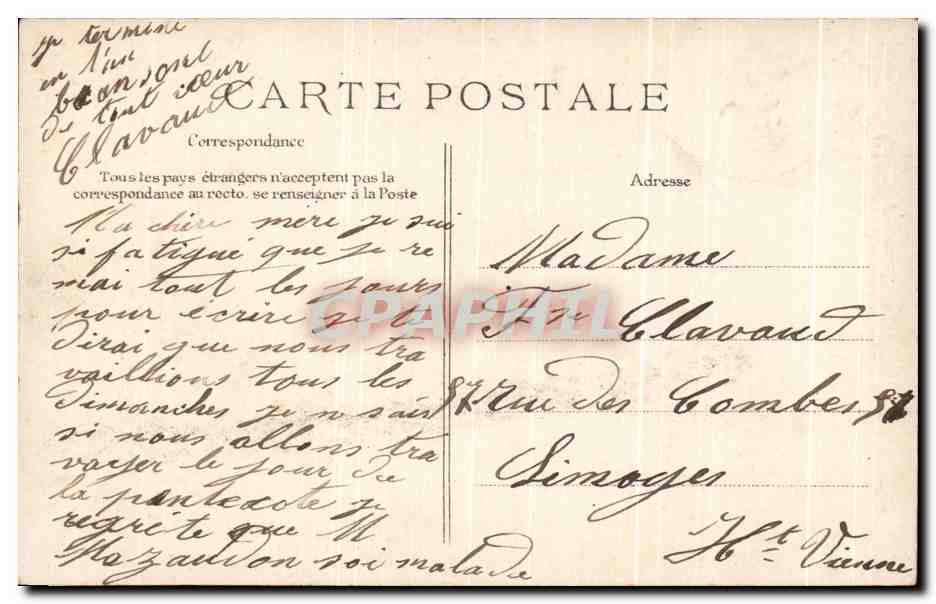 CARTE POSTALE
Correspondance
Tous les pays étrangers n'acceptent pas la
correspondance au recto. se renseigner à la Poste
Ma chère mere je sui
si fatigué que je re
mai tout les jours
pour écrire je te
dirai que nous tra
vaillions tous les
dimanches je n sais
si nous allons tra
vayer le jour de
la pentecote je
regrète que M
Mazaudon soi malade
je termine
en t'en
de tout cœur
Clavaud
Adresse
Madame
Fse Clavaud
87 rue des Combes 87
Limoges
Hte Vienne
CPAPHIL